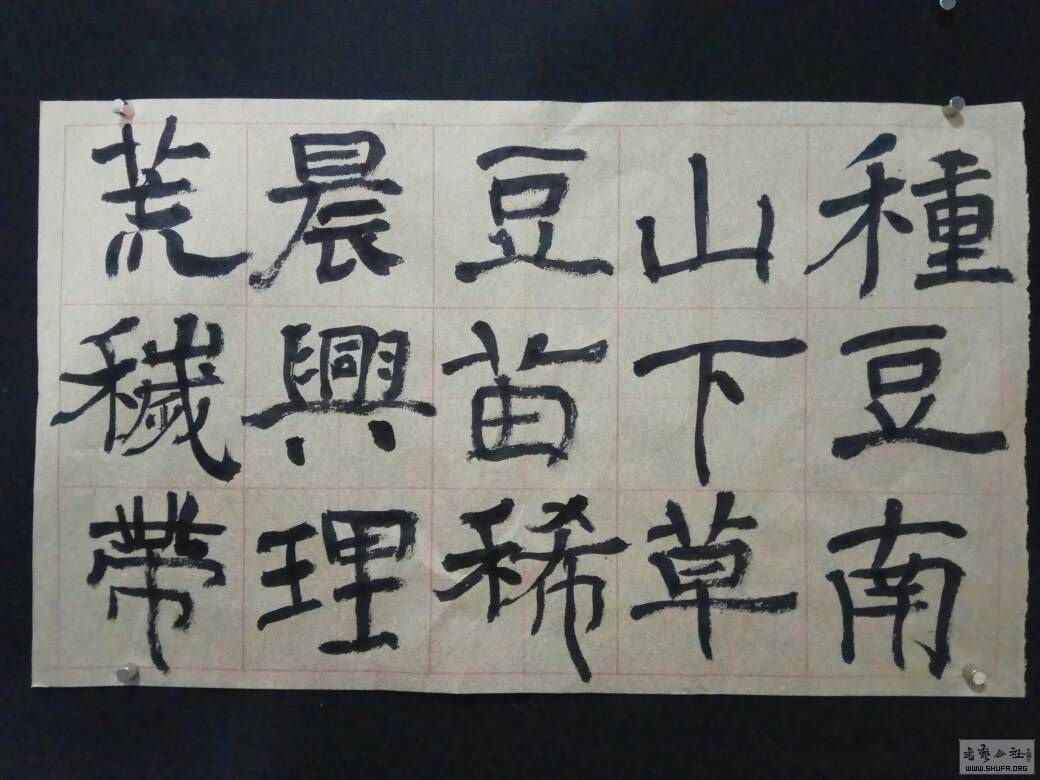 種豆南
山下草
豆苗稀
晨興理
荒穢帶
WWW.SHUFA.ORG